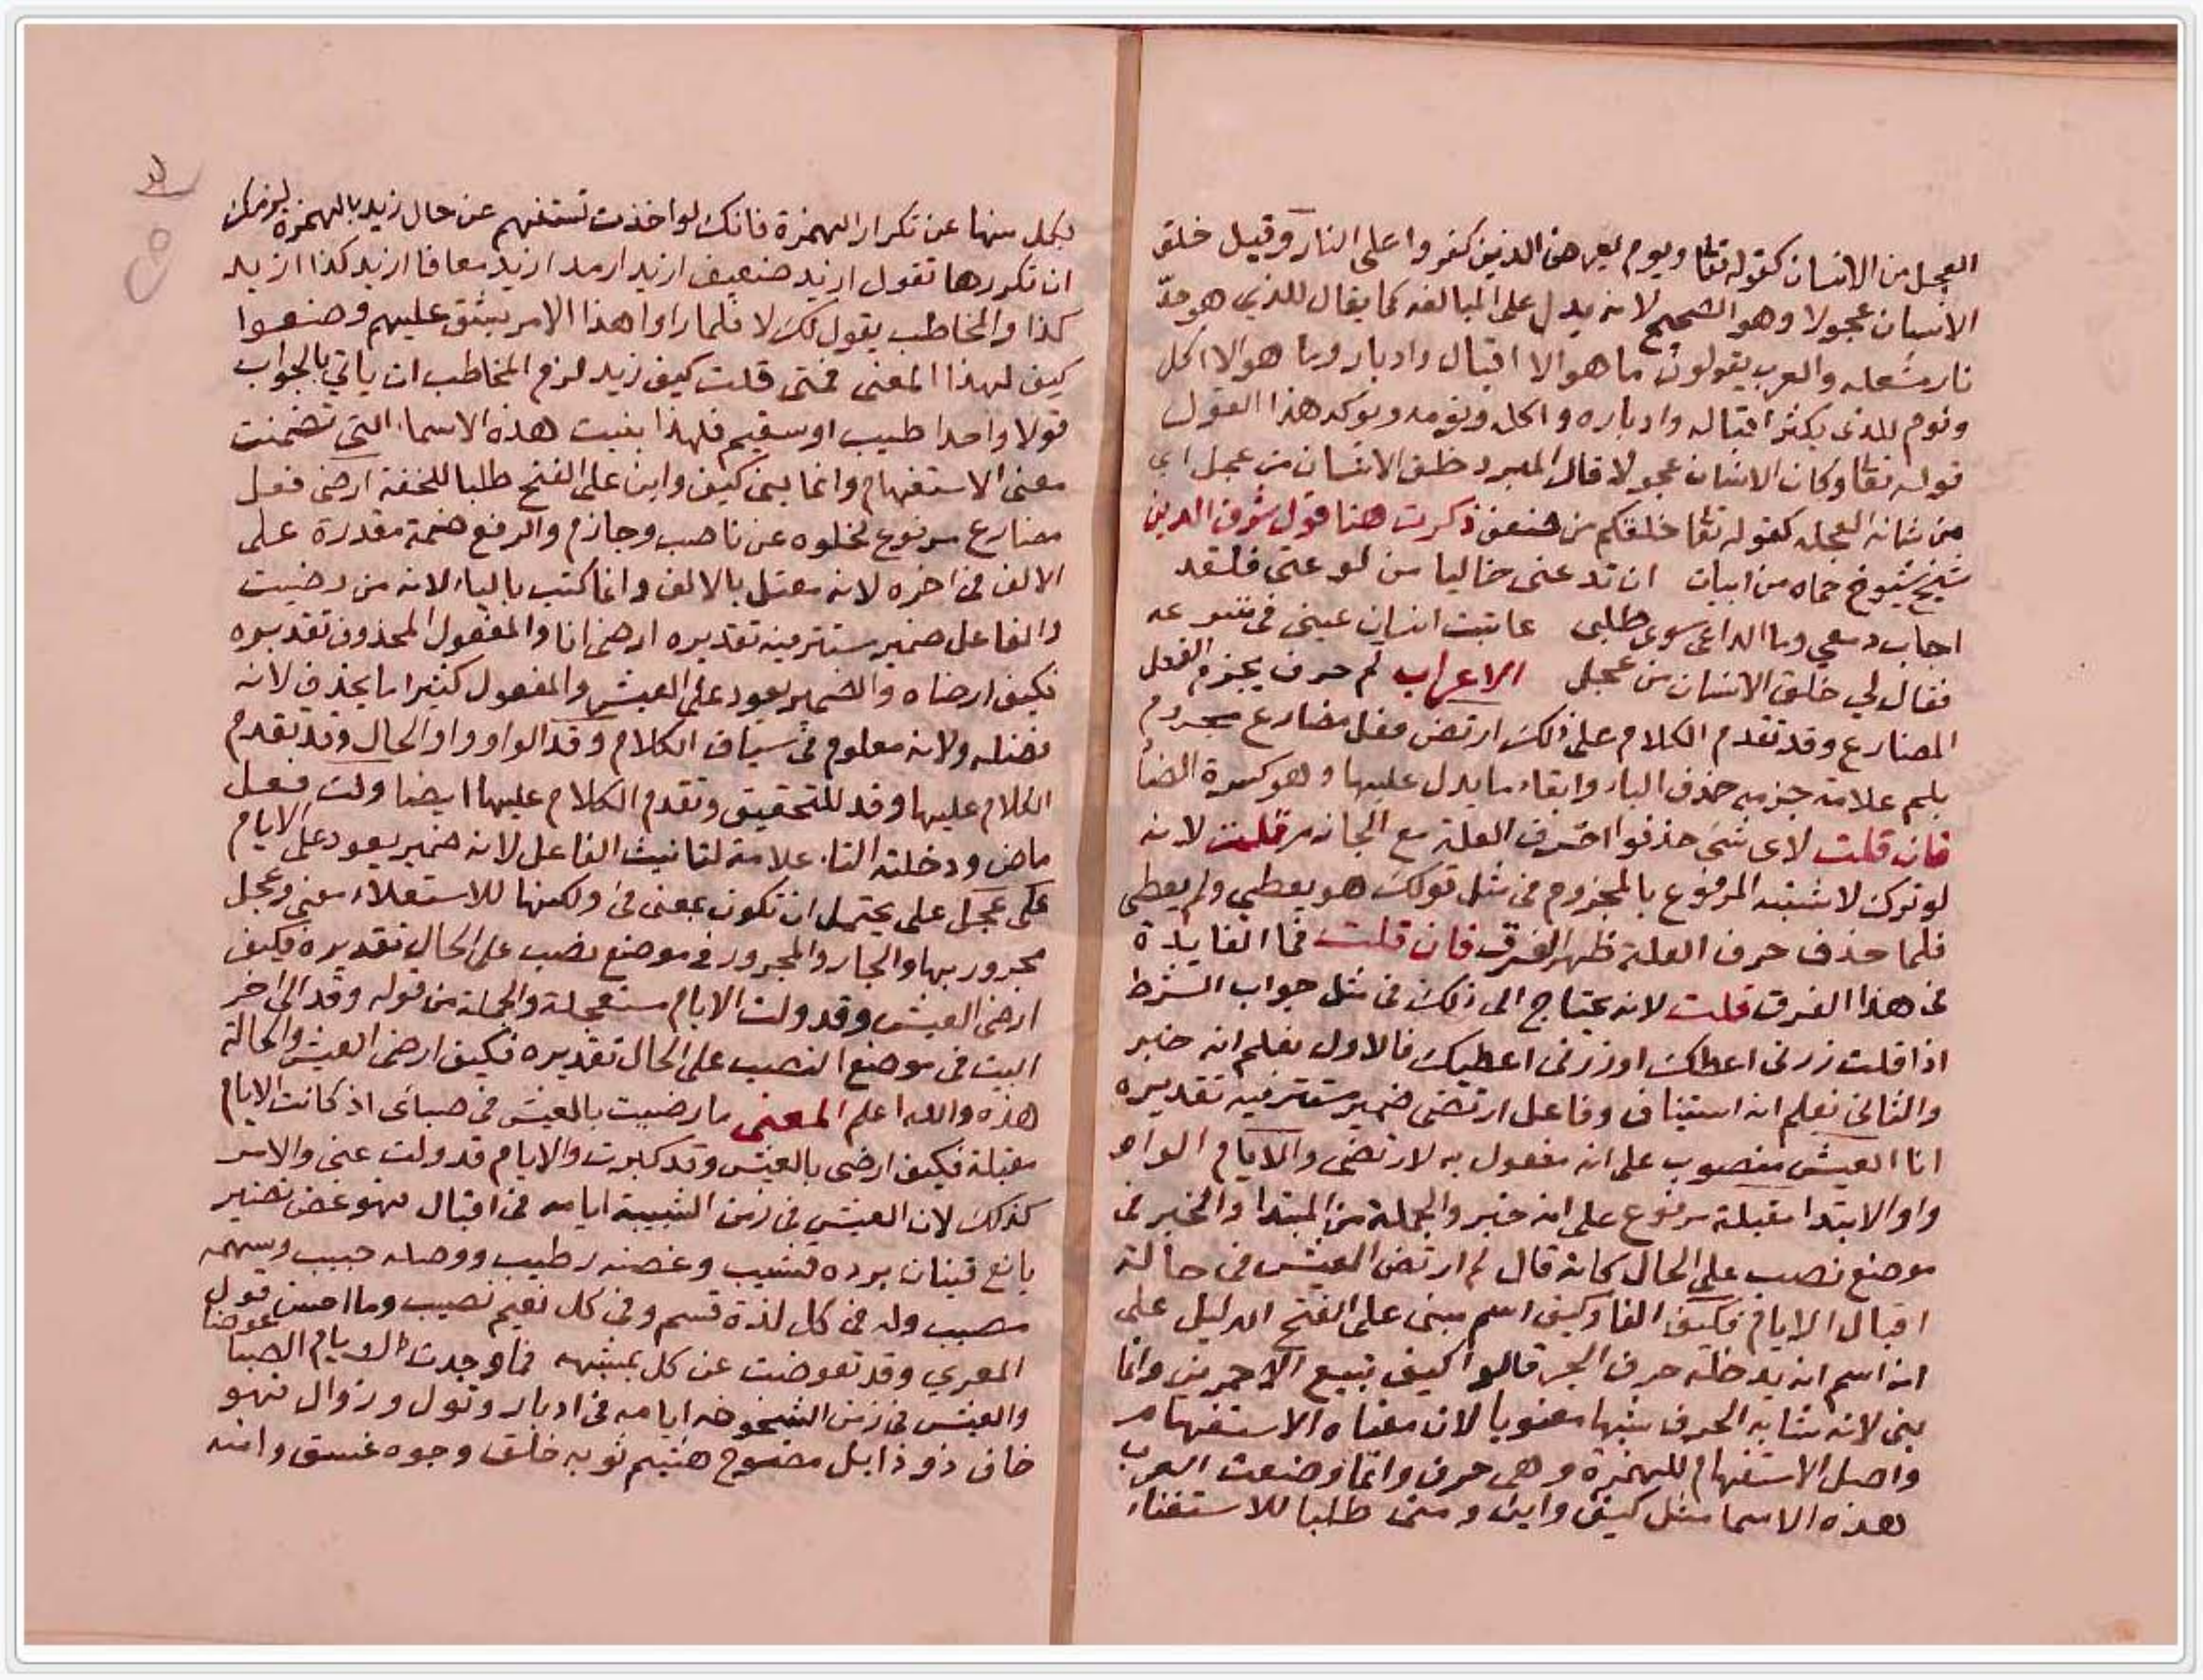 العجل من الانسان كقوله تعا ويوم يعرض الذين كفروا على النار وقيل خلق
الانسان عجولا وهو الصحيح لانه يدل على المبالغه كما يقال للذي هو حدّ
نار مشعله والعرب يقولون ما هو الا اقبال وادبار وما هو الا اكل
ونوم للذي يكثر اقباله وادباره واكله ونومه ويوكد هذا القول
قوله تعا وكان الانسان عجولا قال المبرد خلق الانسان من عجل اي
من شانه العجله كقوله تعا خلقكم من ضعف ذكرت هنا قول شرف الدين
شيخ شيوخ حماه من ابيات ان تدعنى خاليا من لوعتى فلقد
اجاب دمعي وما الداعى سوى طللى عاتبت انسان عينى فى تسرعه
فقال لي خلق الانسان من عجل الاعراب لم حرف يجزم الفعل
المضارع وقد تقدم الكلام على ذلك ارتض فعل مضارع مجزوم
بلم علامة جزمه حذف الياء وابقاء ما يدل عليها وهو كسرة الضاد
فان قلت لاى شى حذفوا احرف العلة مع الجازم قلت لانه
لو ترك لاشتبه المرفوع بالمجزوم فى مثل قولك هو يعطي ولم يعطى
فلما حذف حرف العلة ظهر الفرق فان قلت فما الفايدة
فى هذا الفرق قلت لانه يحتاج الى ذلك فى مثل جواب الشرط
اذا قلت زرنى اعطك او زرنى اعطيك فالاول يعلم انه خبر
والثانى يعلم انه استيناف وفاعل ارتضى ضمير مستتر فيه تقديره
انا العيش منصوب على انه مفعول به لارتضى والايام الواو
واو الابتدا مقبلة مرفوع على انه خبر والجملة من المبتدا والخبر فى
موضع نصب على الحال كانه قال لم ارتض العيش فى حالة
اقبال الايام فكيف الفا وكيف اسم مبنى على الفتح الدليل على
انه اسم انه يدخله حرف الجر قالوا كيف تبيع الاحمرين وانما
بنى لانه شابه الحرف شبها معنويا لان معناه الاستفهام
واصل الاستفهام للهمزة وهى حرف وانما وضعت العرب
هذه الاسما مثل كيف واين ومتى طلبا للاستغناء
بكل منها عن تكرار الهمزة فانك لو اخذت تستفهم عن حال زيد بالهمزة لزمك
ان تكررها تقول ازيد ضعيف ازيد ارمد ازيد معافا ازيد كذا ازيد
كذا والمخاطب يقول لك لا فلما راوا هذا الامر يشق عليهم وضعوا
كيف لهذا المعنى فمتى قلت كيف زيد لزم المخاطب ان ياتي بالجواب
قولا واحدا طيب او سقيم فلهذا بنيت هذه الاسماء التى تضمنت
معنى الاستفهام وانما بنى كيف واين على الفتح طلبا للخفة ارضى فعل
مضارع مرفوع لخلوه عن ناصب وجازم والرفع ضمة مقدرة على
الالف فى اخره لانه معتل بالالف وانما كتب بالياء لانه من رضيت
والفاعل ضمير مستتر فيه تقديره ارضى انا والمفعول المحذوف تقديره
فكيف ارضاه والضمير يعود على العيش والمفعول كثيرا ما يحذف لانه
فضله ولانه معلوم فى سياق الكلام وقد الواو واو الحال وقد تقدم
الكلام عليها وقد للتحقيق وتقدم الكلام عليها ايضا ولت فعل
ماض ودخلته التاء علامة لتانيث الفاعل لانه ضمير يعود على الايام
على عجل على يحتمل ان تكون بمعنى فى ولكنها للاستعلاء معنى وعجل
مجرور بها والجار والمجرور فى موضع نصب على الحال تقديره فكيف
ارضى العيش وقد ولت الايام مستعجلة والجملة من قوله وقد الى اخر
البيت فى موضع النصب على الحال تقديره فكيف ارضى العيش والحالة
هذه والله اعلم المعنى ما رضيت بالعيش فى صباى اذ كانت الايام
مقبلة فكيف ارضى بالعيش وقد كبرت والايام قد ولت عنى والامر
كذلك لان العيش فى زمن الشبيبة ايامه فى اقبال فهو غض نضير
يانع فينان برده قشيب وغصنه رطيب ووصله حبيب وسهمه
مصيب وله فى كل لذة قسم وفى كل نعيم نصيب وما احسن قول
المعري وقد تعوضت عن كل بمشبهه فما وجدت لايام الصبا عوضا
والعيش فى زمن الشيخوخه ايامه فى ادبار وتول وزوال فهو
خاف ذو ذابل مصوح هشيم ثوبه خلق وجوه غسق وامنه